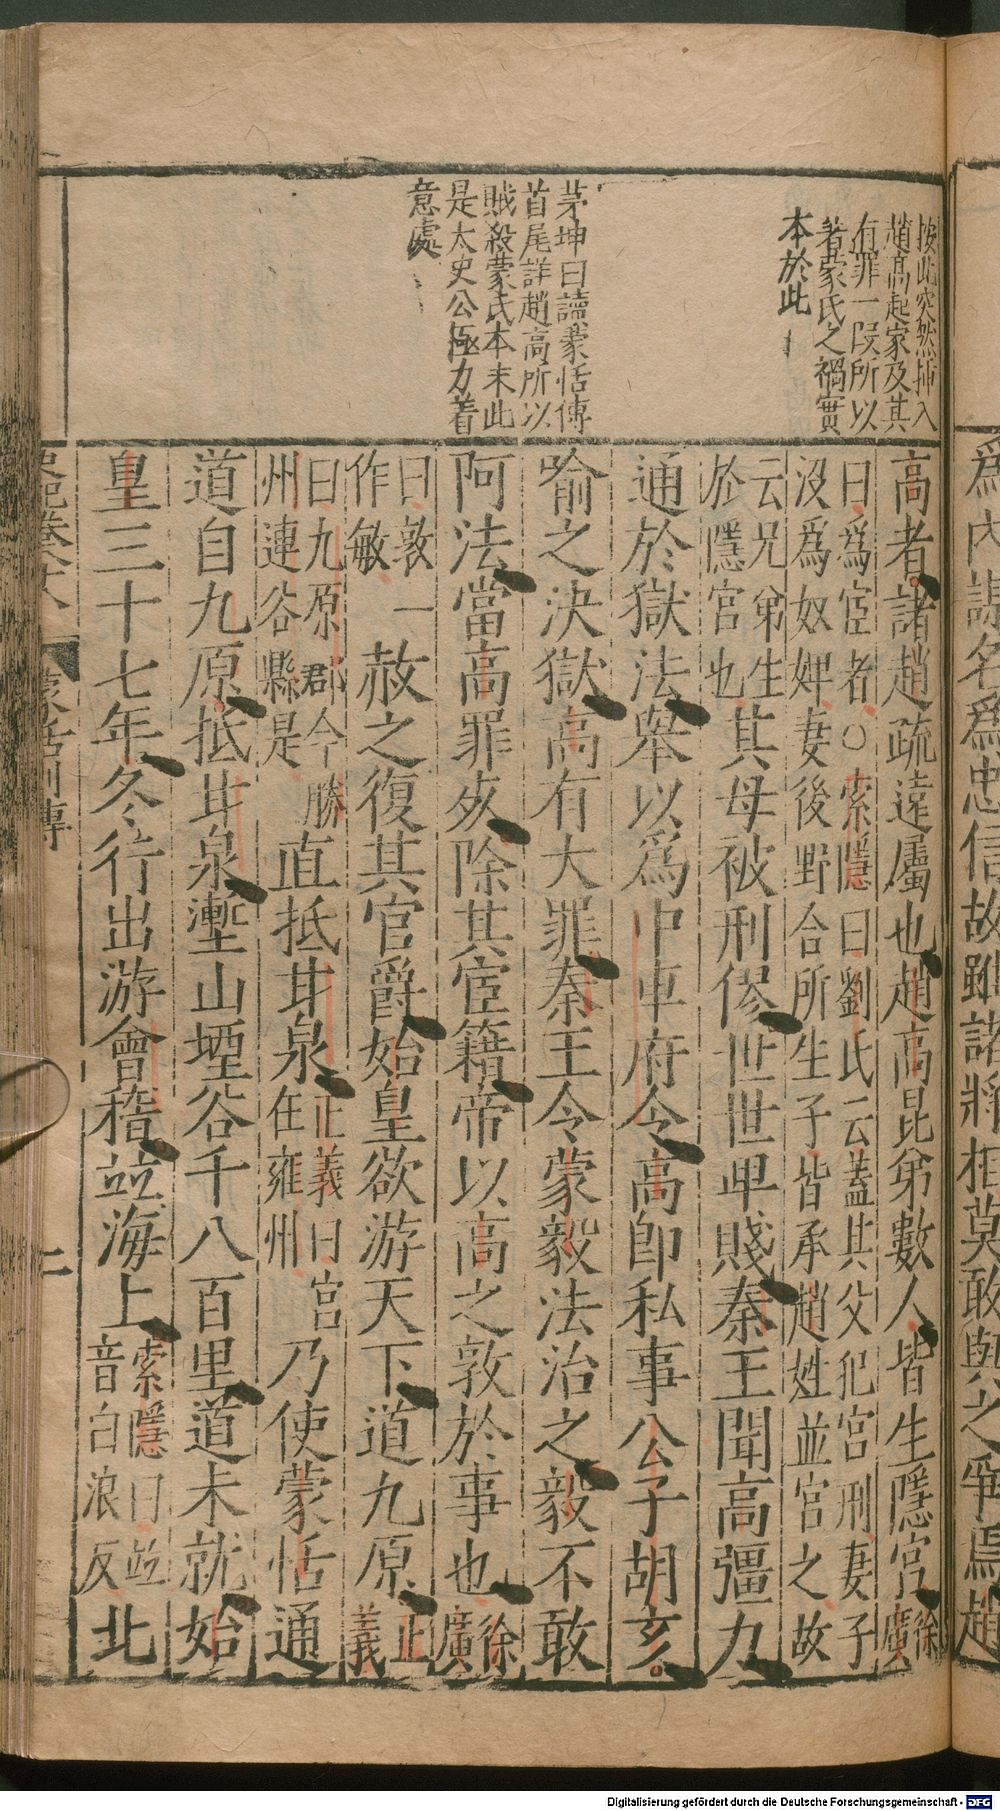 爲內謀名爲忠信故雖諸將相莫敢與之爭焉趙
按此突然揷入
趙高起家及其
有罪一叚所以
著蒙氏之禍實
本於此
茅坤曰讀蒙恬傳
首尾詳趙高所以
賊殺蒙氏本末此
是太史公極力着
意處
高者諸趙疏遠屬也趙高昆弟數人皆生隱宮徐廣
曰爲宦者○索隱曰劉氏云蓋其父犯宮刑妻子
没爲奴婢妻後野合所生子皆承趙姓並宮之故
云兄弟生
於隱宮也
其母被刑僇世世卑賤秦王聞高彊力
通於獄法舉以爲中車府令高即私事公子胡亥
喻之決獄高有大罪秦王令蒙毅法治之毅不敢
阿法當高罪死除其宦籍帝以高之敦於事也徐廣
曰敦一
作敏
赦之復其官爵始皇欲游天下道九原正義
曰九原郡今勝
州連谷縣是
直抵甘泉
正義曰宮
在雍州
乃使蒙恬通
道自九原抵甘泉塹山堙谷千八百里道未就始
皇三十七年冬行出游會稽竝海上
索隱曰竝
音白浪反
北
史記卷八十八
蒙恬列傳
二
Digitalisierung gefördert durch die Deutsche Forschungsgemeinschaft - DFG